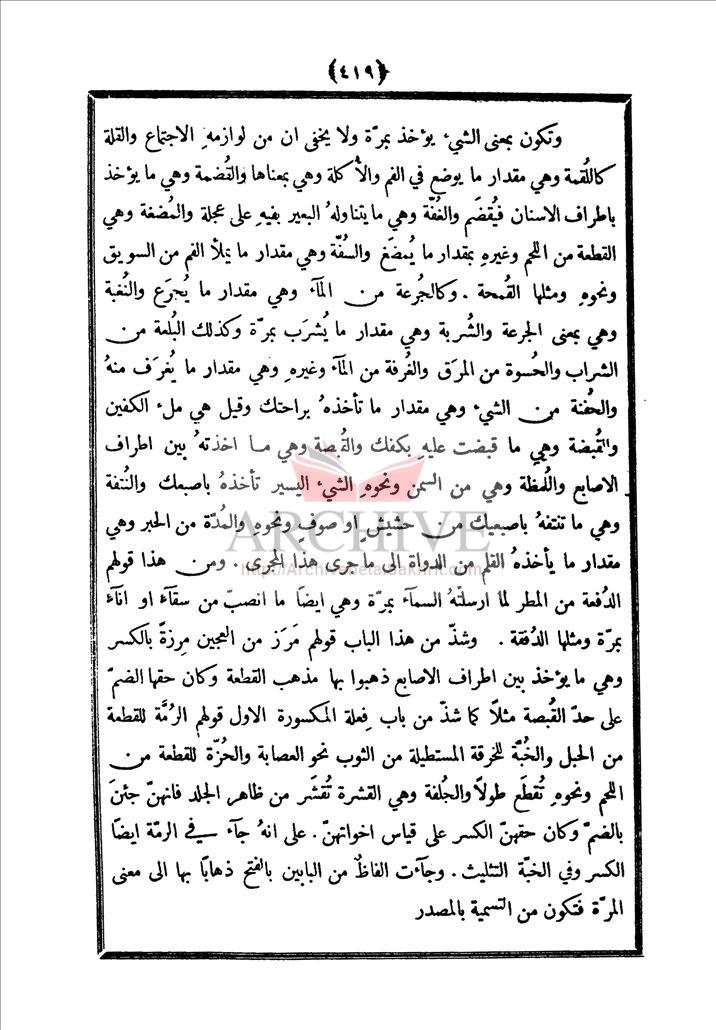 ﴿٤١٩﴾
وتكون بمعنى الشيء يؤخذ بمرّة ولا يخفى ان من لوازمهِ الاجتماع والقلة
كاللُقمة وهي مقدار ما يوضع في الفم والأُكلة وهي بمعناها والقُضمة وهي ما يؤخذ
باطراف الاسنان فيُقضَم والغُفّة وهي ما يتناولهُ البعير بفيهِ على عجلة والمُضغة وهي
القطعة من اللحم وغيرهِ بمقدار ما يُمضَغ والسُفّة وهي مقدار ما يملأ الفم من السويق
ونحوهِ ومثلها القُمحة . وكالجُرعة من المآء وهي مقدار ما يُجرَع والنُغبة
وهي بمعنى الجرعة والشُربة وهي مقدار ما يُشرَب بمرّة وكذلك البُلعة من
الشراب والحُسوة من المرَق والغُرفة من المآء وغيرهِ وهي مقدار ما يُغرَف منهُ
والحُفنة من الشيء وهي مقدار ما تأخذهُ براحتك وقيل هي ملء الكفين
والقُبضة وهي ما قبضت عليهِ بكفك والقُبصة وهي ما اخذتهُ بين اطراف
الاصابع واللُمظة وهي من السمن ونحوهِ الشيء اليسير تأخذهُ باصبعك والنُتفة
وهي ما تنتفهُ باصبعيك من حشيش او صوف ونحوهِ والمُدّة من الحبر وهي
مقدار ما يأخذهُ القلم من الدواة الى ما جرى هذا المجرى . ومن هذا قولهم
الدُفعة من المطر لما ارسلتْهُ السمآء بمرّة وهي ايضًا ما انصبّ من سقآء او انآء
بمرّة ومثلها الدُفقة . وشذّ من هذا الباب قولهم مَرَز من العجين مِرزةً بالكسر
وهي ما يؤخذ بين اطراف الاصابع ذهبوا بها مذهب القطعة وكان حقها الضمّ
على حدّ القُبصة مثلًا كما شذّ من باب فِعلة المكسورة الاول قولهم الرُمَّة للقطعة
من الحبل والخُبَّة للخرقة المستطيلة من الثوب نحو العصابة والحُزّة للقطعة من
اللحم ونحوهِ تُقطَع طولًا والجُلفة وهي القشرة تُقشَر من ظاهر الجلد فانهنّ جئنَ
بالضمّ وكان حقهنّ الكسر على قياس اخواتهنّ . على انهُ جآء في الرمّة ايضًا
الكسر وفي الخبّة التثليث . وجآءت الفاظٌ من البابين بالفتح ذهابًا بها الى معنى
المرّة فتكون من التسمية بالمصدر
ARCHIVE
http://Archivebeta.Sakhrit.com